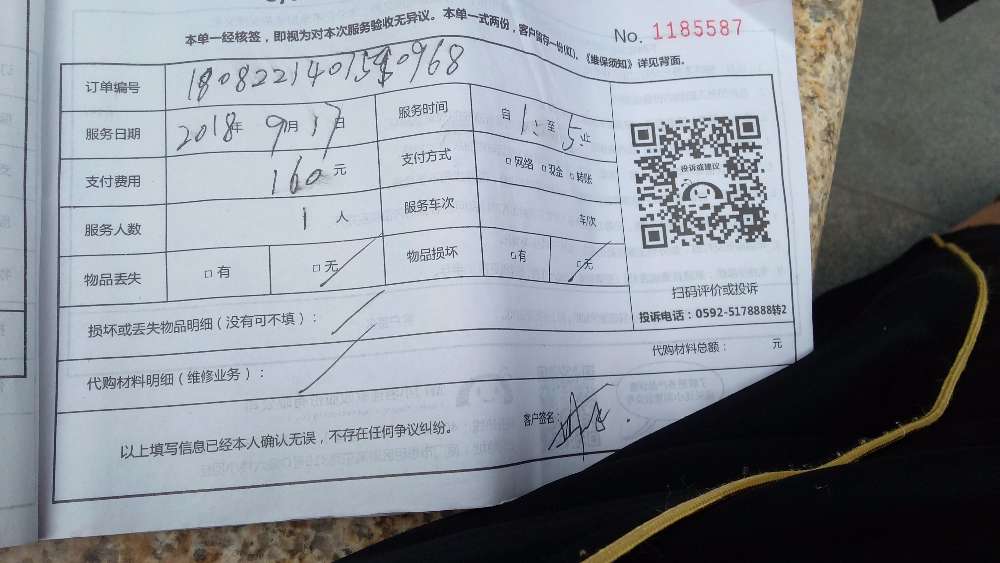 本单一经核签，即视为对本次服务验收无异议。本单一式两份，客户留存一份(红)，《维保须知》详见背面。
No. 1185587
订单编号
服务日期 2018年 9月 17日 服务时间 自 1: 至 5: 止
支付费用 160 元 支付方式 □网络 □现金 □转账
服务人数 1 人 服务车次 车/次
物品丢失 □有 □无 物品损坏 □有 □无
投诉或建议
扫码评价或投诉
投诉电话：0592-5178888转2
损坏或丢失物品明细（没有可不填）：
代购材料明细（维修业务）：
代购材料总额： 元
以上填写信息已经本人确认无误，不存在任何争议纠纷。
客户签名：